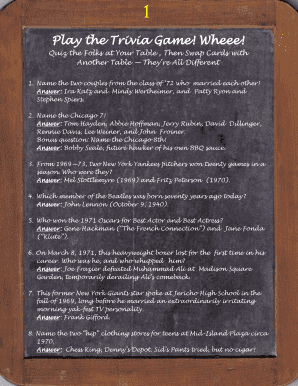 1
Play the Trivia Game! Wheee!
Quiz the Folks at Your Table, Then Swap Cards with
Another Table — They're All Different
1. Name the two couples from the class of '71 who married each other!
Answer: Ira Katz and Mindy Wertheimer, and Patty Ryon and
Stephen Spiers.
2. Name the Chicago 7!
Answer: Tom Hayden, Abbie Hoffman, Jerry Rubin, David Dillinger,
Rennie Davis, Lee Weiner, and John Froiner.
Bonus question: Name the Chicago 8th!
Answer: Bobby Seale, future hawker of his own BBQ sauce.
3. From 1969–73, two New York Yankees pitchers won twenty games in a
season. Who were they?
Answer: Mel Stottlemyre (1969) and Fritz Peterson (1970).
4. Which member of the Beatles was born seventy years ago today?
Answer: John Lennon (October 9, 1940).
5. Who won the 1971 Oscars for Best Actor and Best Actress?
Answer: Gene Hackman ("The French Connection") and Jane Fonda
("Klute").
6. On March 8, 1971, this heavyweight boxer lost for the first time in his
career. Who was he, and who whupped him?
Answer: Joe Frazier defeated Muhammad Ali at Madison Square
Garden, temporarily derailing Ali's comeback.
7. This former New York Giants star spoke at Jericho High School in the
fall of 1969, long before he married an extraordinarily irritating
morning yak-fest TV personality.
Answer: Frank Gifford.
8. Name the two "hip" clothing stores for teens at Mid-Island Plaza circa
1970.
Answer: Chess King, Denny's Depot. Sid's Pants tried, but no cigar!